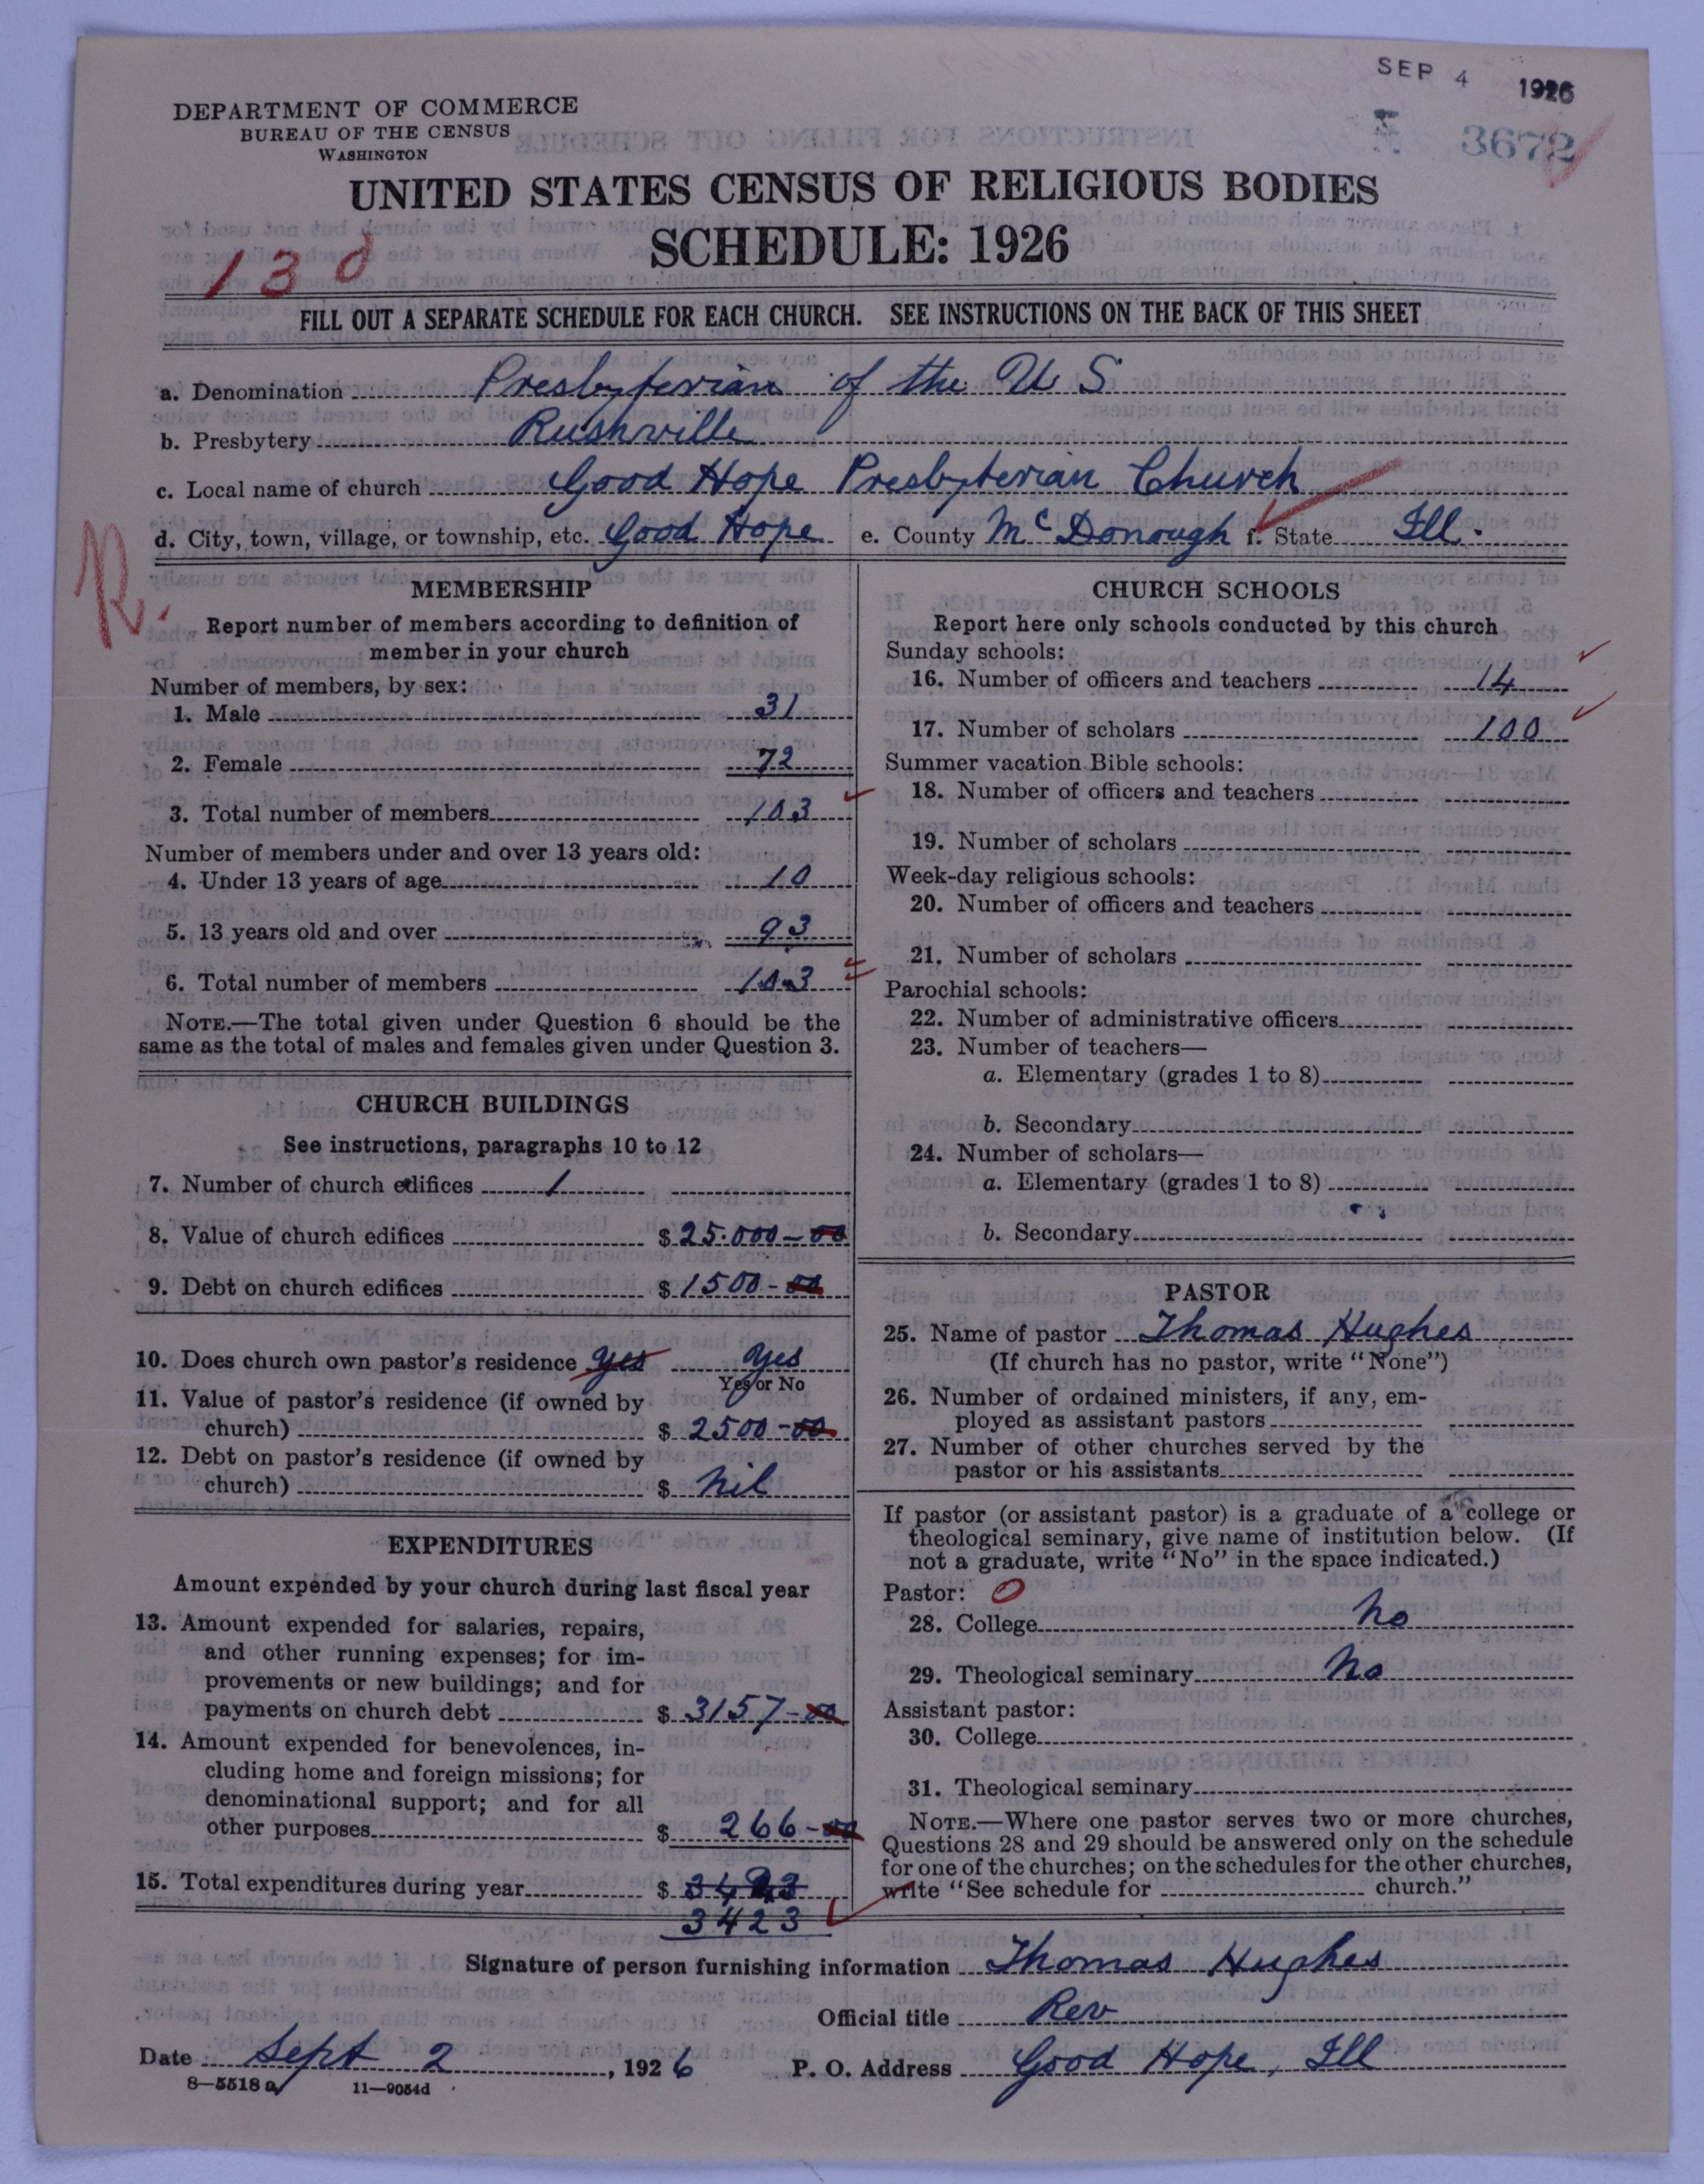 SEP 4 1926
DEPARTMENT OF COMMERCE
BUREAU OF THE CENSUS
WASHINGTON
3672
UNITED STATES CENSUS OF RELIGIOUS BODIES
SCHEDULE: 1926
13 d
FILL OUT A SEPARATE SCHEDULE FOR EACH CHURCH. SEE INSTRUCTIONS ON THE BACK OF THIS SHEET
a. Denomination Presbyterian of the U S
b. Presbytery Rushville
c. Local name of church Good Hope Presbyterian Church
d. City, town, village, or township, etc. Good Hope e. County McDonough f. State Ill.
R.
MEMBERSHIP
Report number of members according to definition of
member in your church
Number of members, by sex:
1. Male 31
2. Female 72
3. Total number of members 103
Number of members under and over 13 years old:
4. Under 13 years of age 10
5. 13 years old and over 93
6. Total number of members 103
NOTE.—The total given under Question 6 should be the
same as the total of males and females given under Question 3.
CHURCH BUILDINGS
See instructions, paragraphs 10 to 12
7. Number of church edifices 1
8. Value of church edifices $ 25.000-00
9. Debt on church edifices $ 1500-00
10. Does church own pastor's residence yes yes
Yes or No
11. Value of pastor's residence (if owned by
church) $ 2500-00
12. Debt on pastor's residence (if owned by
church) $ nil
EXPENDITURES
Amount expended by your church during last fiscal year
13. Amount expended for salaries, repairs,
and other running expenses; for im-
provements or new buildings; and for
payments on church debt $ 3157-00
14. Amount expended for benevolences, in-
cluding home and foreign missions; for
denominational support; and for all
other purposes $ 266-00
15. Total expenditures during year $
3423
CHURCH SCHOOLS
Report here only schools conducted by this church
Sunday schools:
16. Number of officers and teachers 14
17. Number of scholars 100
Summer vacation Bible schools:
18. Number of officers and teachers
19. Number of scholars
Week-day religious schools:
20. Number of officers and teachers
21. Number of scholars
Parochial schools:
22. Number of administrative officers
23. Number of teachers—
a. Elementary (grades 1 to 8)
b. Secondary
24. Number of scholars—
a. Elementary (grades 1 to 8)
b. Secondary
PASTOR
25. Name of pastor Thomas Hughes
(If church has no pastor, write "None")
26. Number of ordained ministers, if any, em-
ployed as assistant pastors
27. Number of other churches served by the
pastor or his assistants
If pastor (or assistant pastor) is a graduate of a college or
theological seminary, give name of institution below. (If
not a graduate, write "No" in the space indicated.)
Pastor: 0
28. College No
29. Theological seminary No
Assistant pastor:
30. College
31. Theological seminary
NOTE.—Where one pastor serves two or more churches,
Questions 28 and 29 should be answered only on the schedule
for one of the churches; on the schedules for the other churches,
write "See schedule for church."
Signature of person furnishing information Thomas Hughes
Official title Rev
Date Sept 2, 1926 P. O. Address Good Hope, Ill
8—5518 a 11—9054d